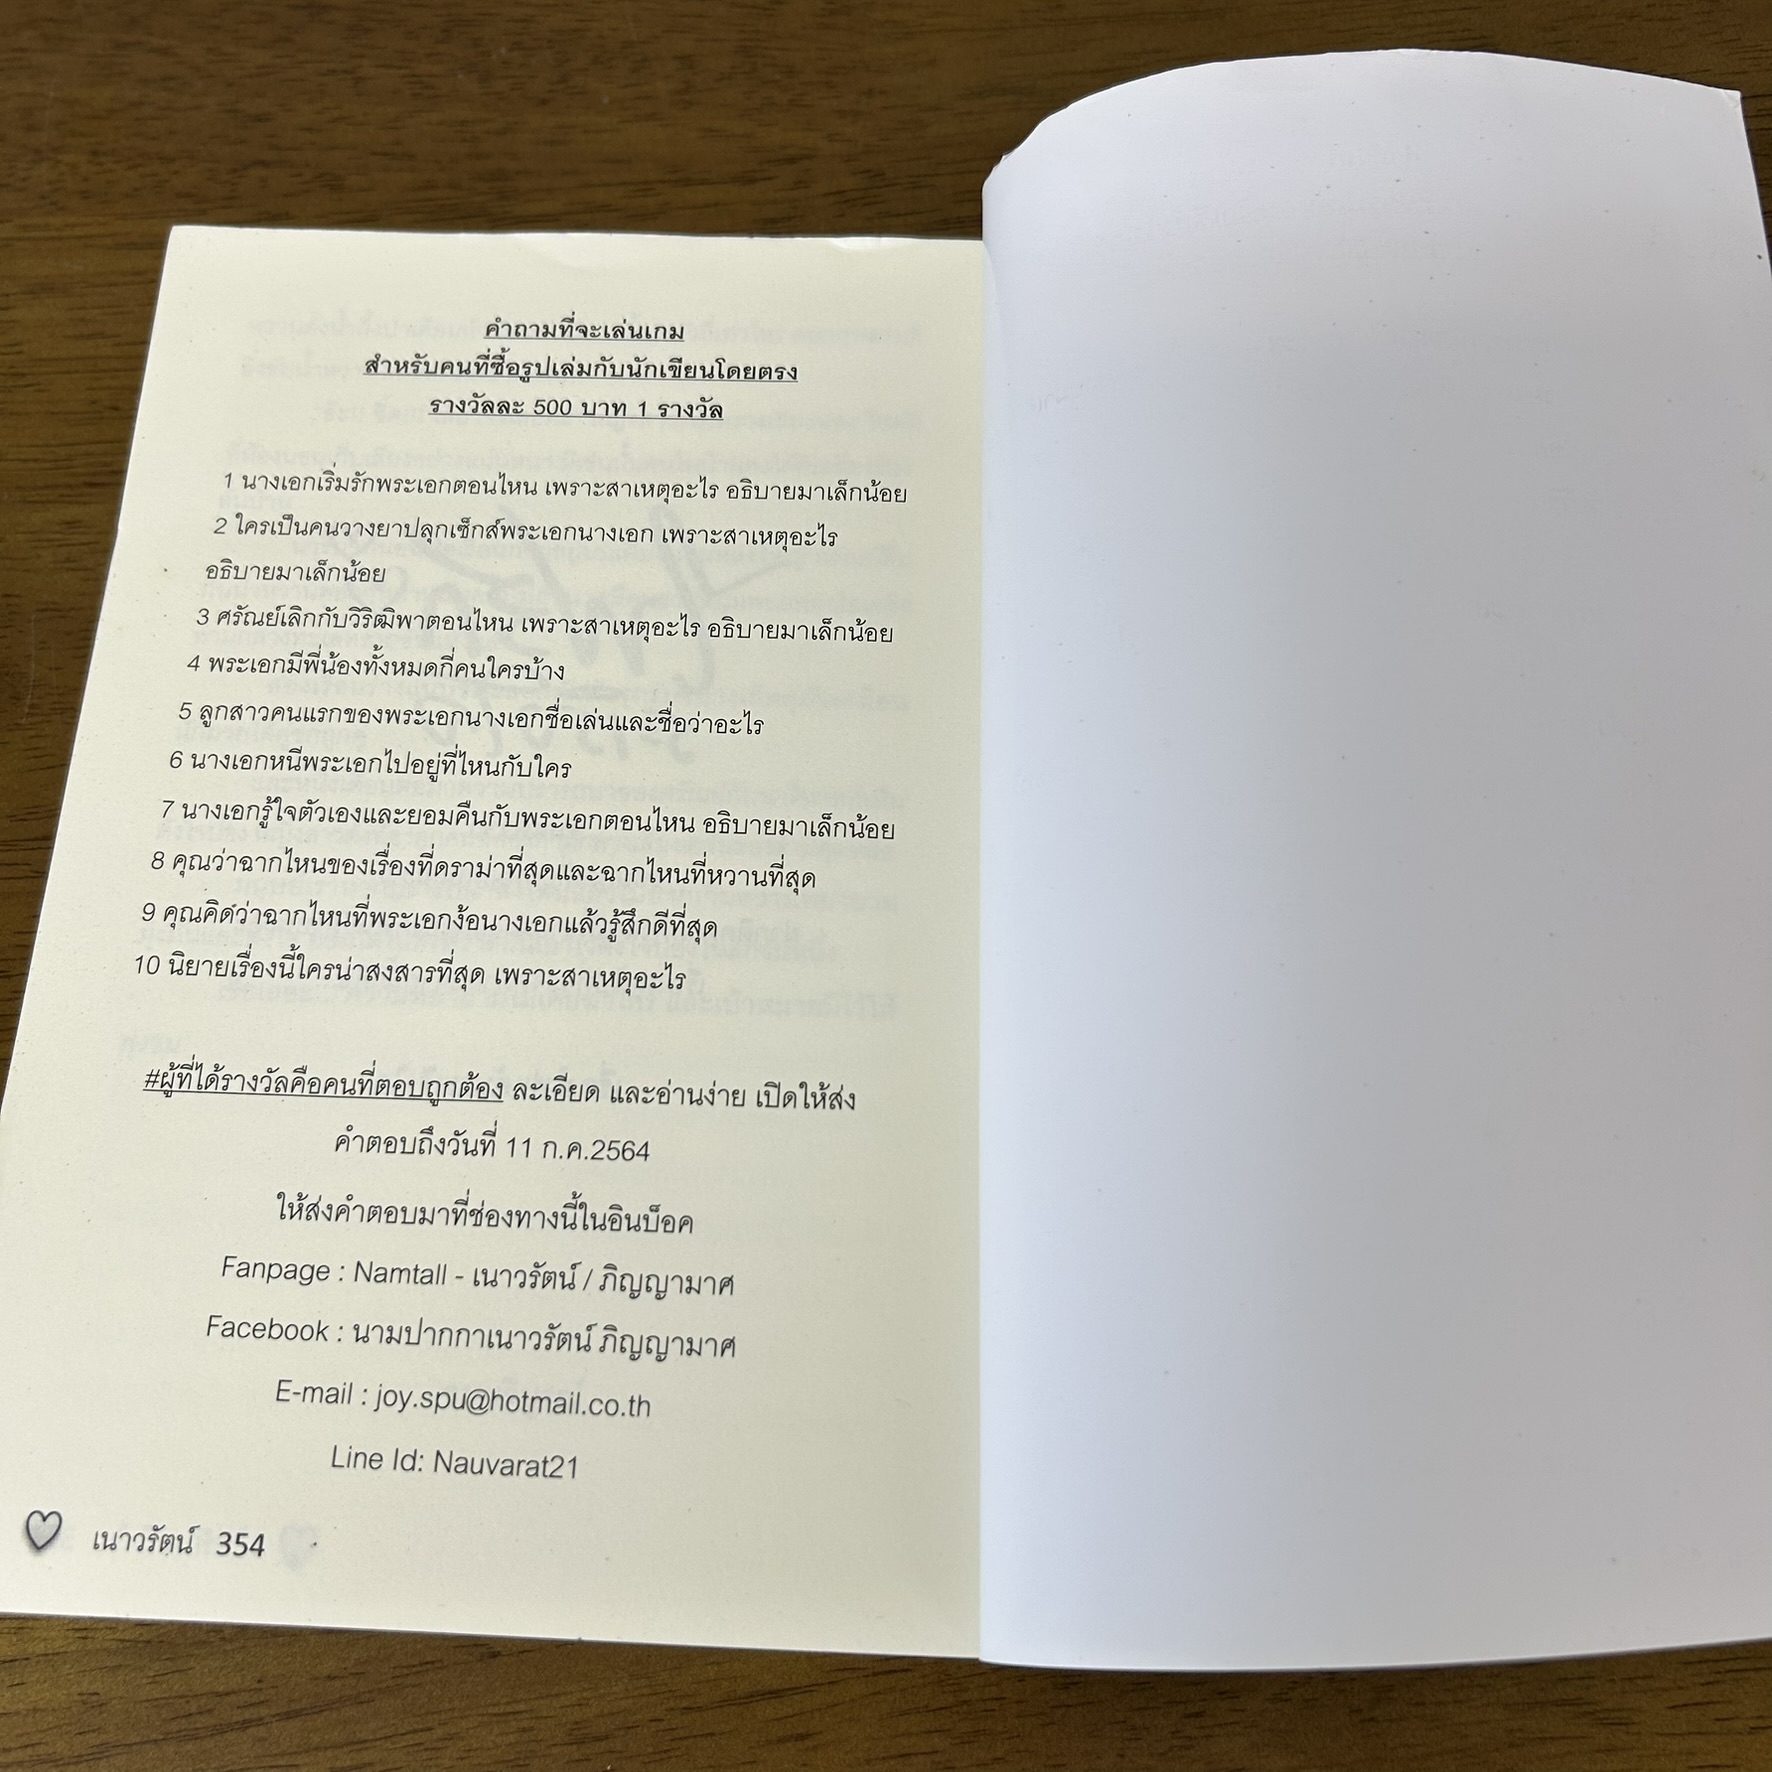 คำถามที่จะเล่นเกม
สำหรับคนที่ซื้อรูปเล่มกับนักเขียนโดยตรง
รางวัลละ 500 บาท 1 รางวัล
1 นางเอกเริ่มรักพระเอกตอนไหน เพราะสาเหตุอะไร อธิบายมาเล็กน้อย
2 ใครเป็นคนวางยาปลุกเซ็กส์พระเอกนางเอก เพราะสาเหตุอะไร
อธิบายมาเล็กน้อย
3 ศรัณย์เลิกกับวิริฒิพาตอนไหน เพราะสาเหตุอะไร อธิบายมาเล็กน้อย
4 พระเอกมีพี่น้องทั้งหมดกี่คนใครบ้าง
5 ลูกสาวคนแรกของพระเอกนางเอกชื่อเล่นและชื่อว่าอะไร
6 นางเอกหนีพระเอกไปอยู่ที่ไหนกับใคร
7 นางเอกรู้ใจตัวเองและยอมคืนกับพระเอกตอนไหน อธิบายมาเล็กน้อย
8 คุณว่าฉากไหนของเรื่องที่ดราม่าที่สุดและฉากไหนที่หวานที่สุด
9 คุณคิดว่าฉากไหนที่พระเอกง้อนางเอกแล้วรู้สึกดีที่สุด
10 นิยายเรื่องนี้ใครน่าสงสารที่สุด เพราะสาเหตุอะไร
#ผู้ที่ได้รางวัลคือคนที่ตอบถูกต้อง ละเอียด และอ่านง่าย เปิดให้ส่ง
คำตอบถึงวันที่ 11 ก.ค.2564
ให้ส่งคำตอบมาที่ช่องทางนี้ในอินบ็อค
Fanpage : Namtall - เนาวรัตน์ / ภิญญามาศ
Facebook : นามปากกาเนาวรัตน์ ภิญญามาศ
E-mail : joy.spu@hotmail.co.th
Line Id: Nauvarat21
เนาวรัตน์ 354